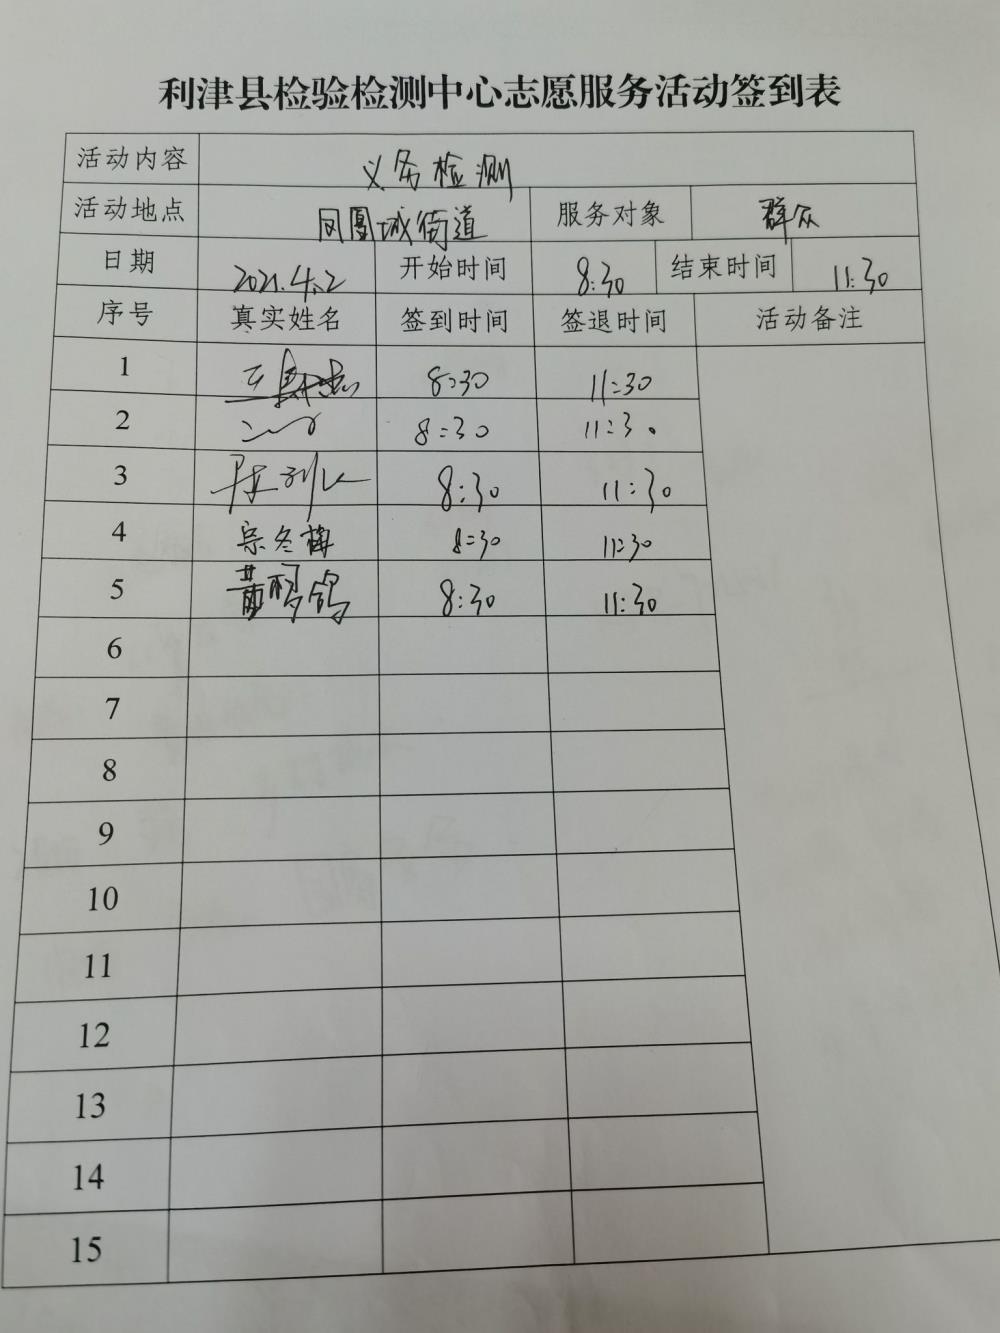 利津县检验检测中心志愿服务活动签到表
活动内容 义务检测
活动地点 凤凰城街道 服务对象 群众
日期 2021.4.2 开始时间 8:30 结束时间 11:30
序号 真实姓名 签到时间 签退时间 活动备注
1 8:30 11:30
2 8:30 11:30
3 8:30 11:30
4 宗冬梅 8:30 11:30
5 8:30 11:30
6
7
8
9
10
11
12
13
14
15